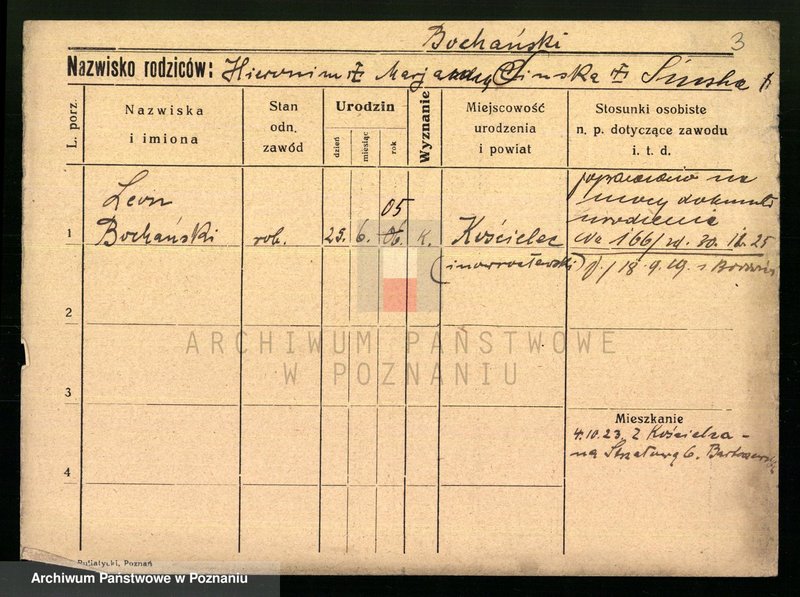 Bochański
3
Nazwisko rodziców: Hieronim Marja Sinska
L. porz.
Nazwiska
i imiona
Stan
odn.
zawód
Urodzin
dzień
miesiąc
rok
Wyznanie
Miejscowość
urodzenia
i powiat
Stosunki osobiste
n. p. dotyczące zawodu
i. t. d.
1
Leon
Bochański
rob.
29. 6. 06.
05
k.
Kościelec
(inowrocławski)
poprawiono na
mocy dokumentu
urodzenia
No 166/ 30. 12. 25
18. 9. 19.
2
ARCHIWUM PAŃSTWOWE
W POZNANIU
3
4
Mieszkanie
4.10.23. Z Kościelca -
na Strzałową 6.
Poznań
Archiwum Państwowe w Poznaniu